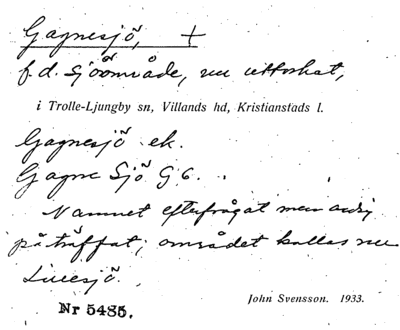 Gagnesjö, +
f. d. sjöområde, nu uttorkat,
i Trolle-Ljungby sn, Villands hd, Kristianstads l.
Gagnesjö ek.
Gagne Sjö G 6.
Namnet efterfrågat men andrig
påträffat; området kallas nu
Lillesjö.
John Svensson. 1933.
Nr 5485.